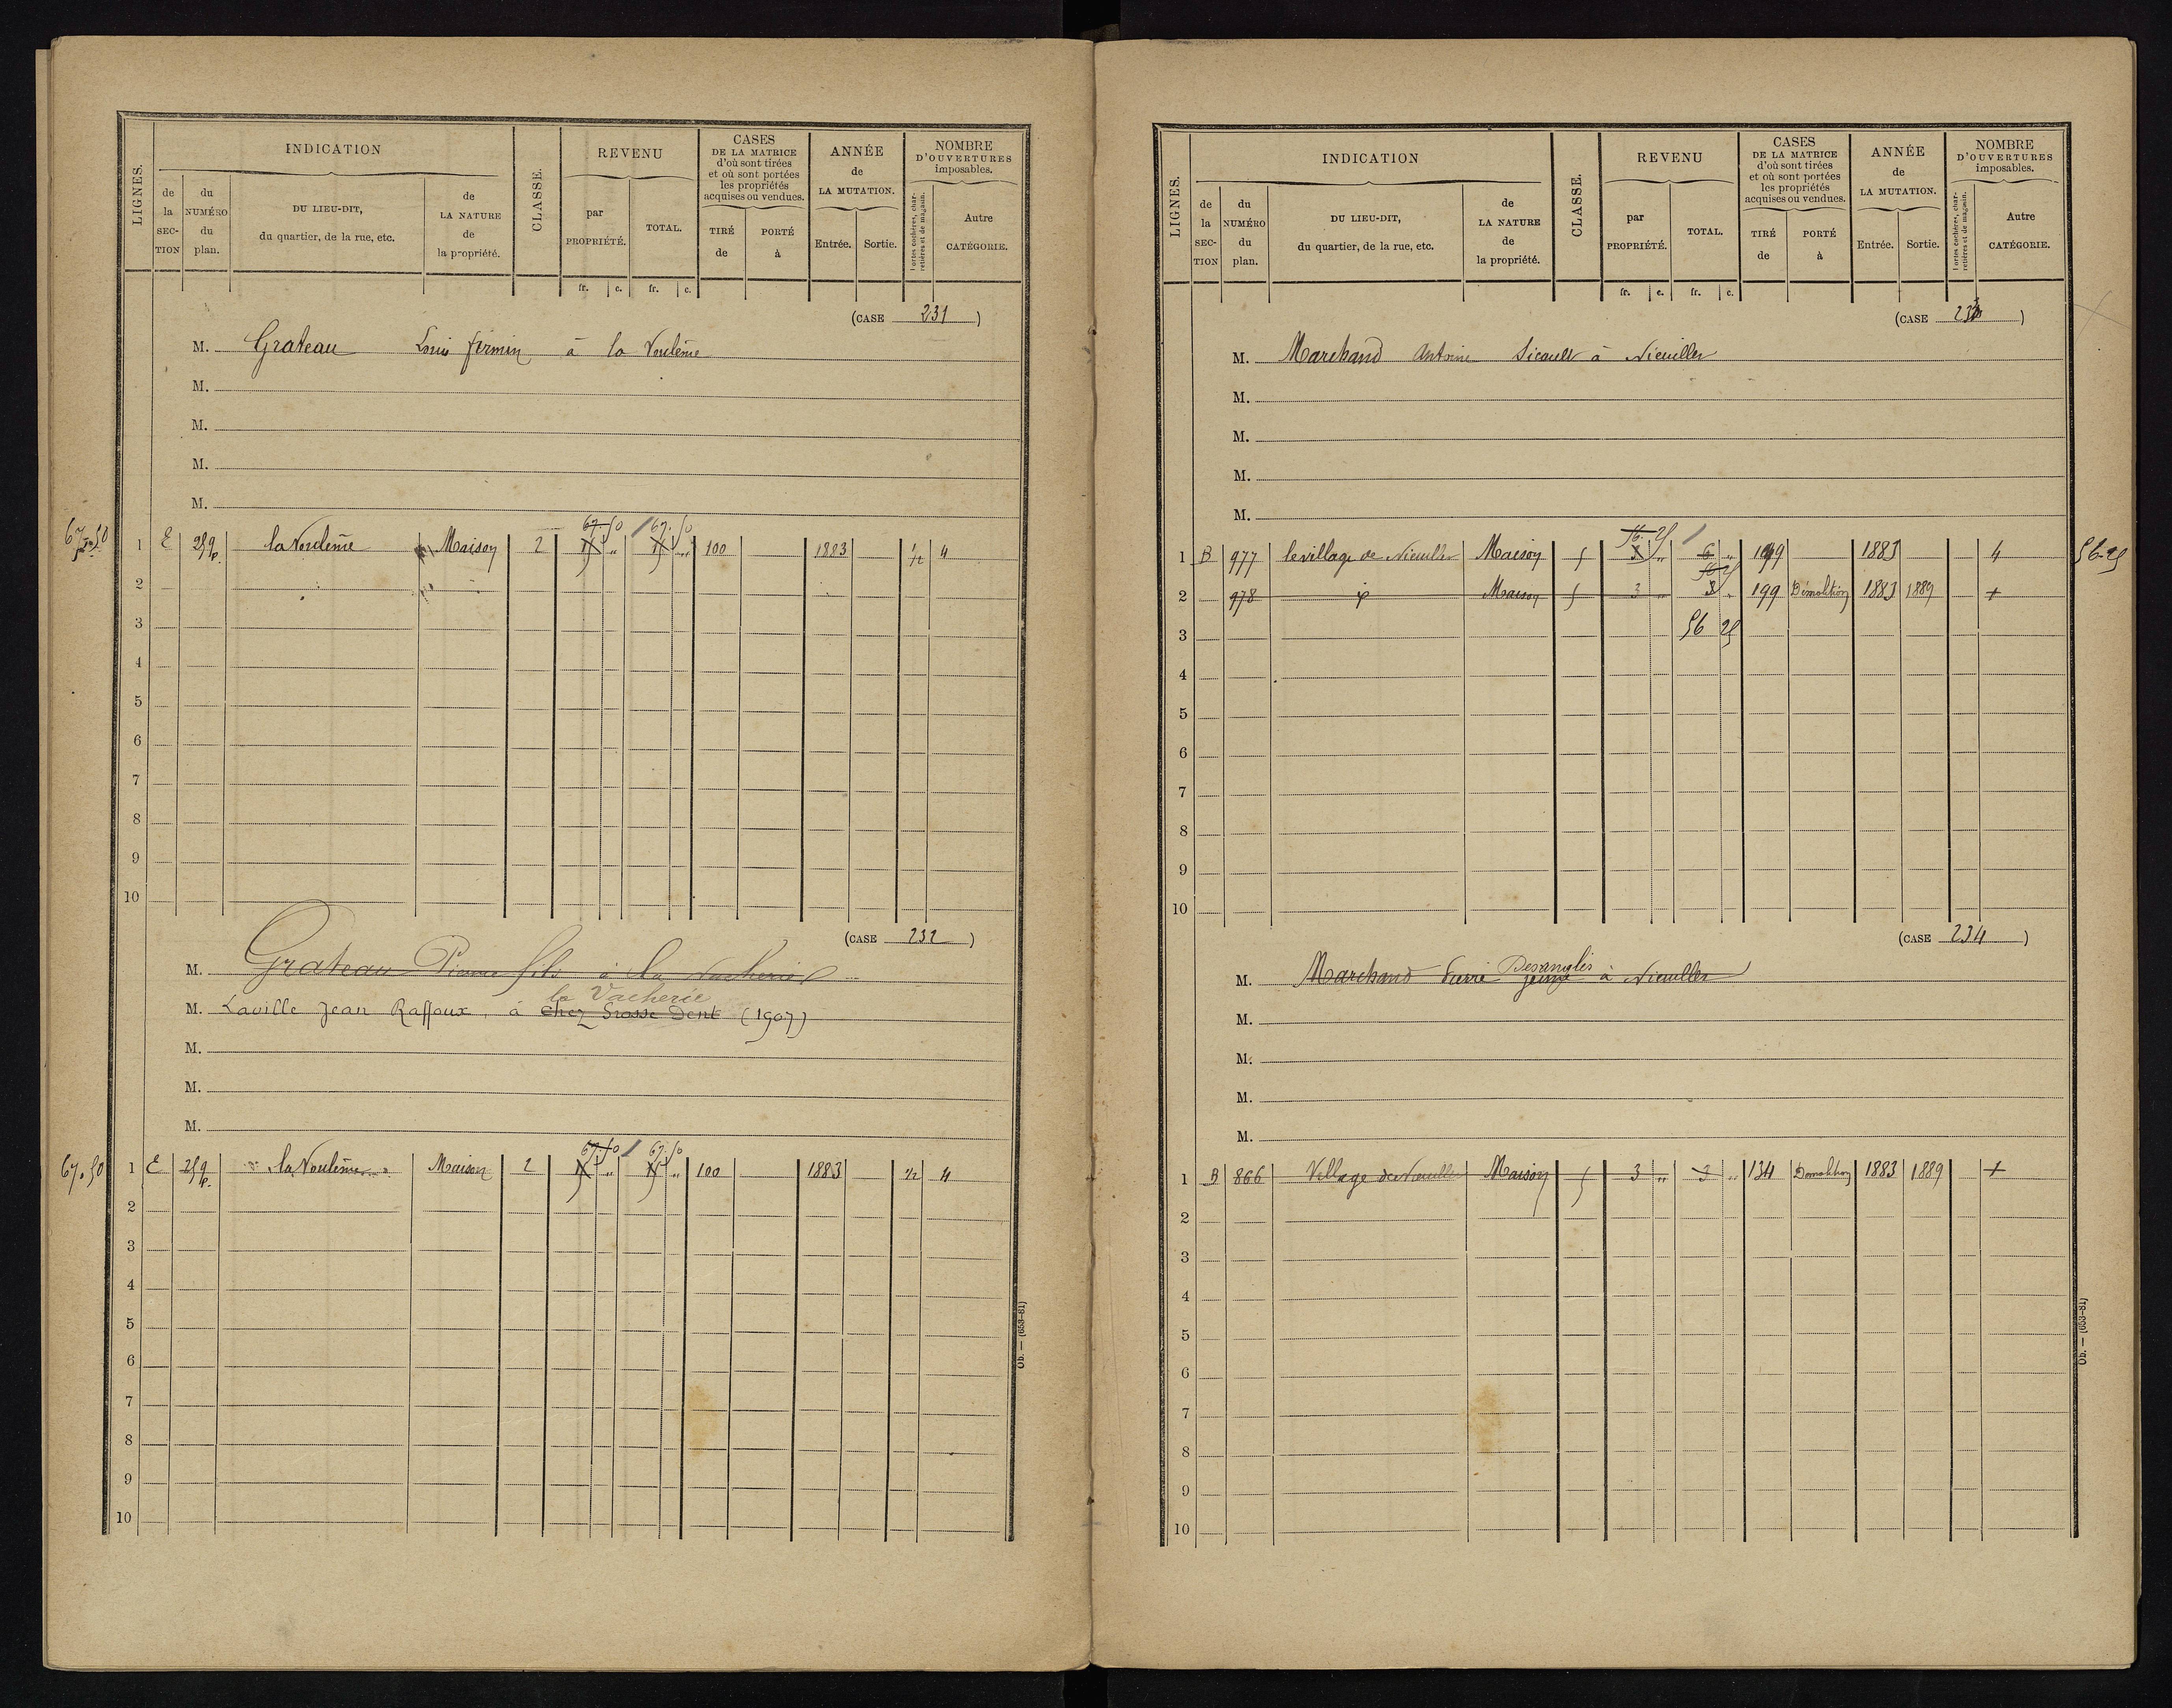 LIGNES.
INDICATION
de la SECTION
du NUMÉRO du plan.
DU LIEU-DIT, du quartier, de la rue, etc.
de LA NATURE de la propriété.
CLASSE.
REVENU
par PROPRIÉTÉ.
TOTAL.
CASES DE LA MATRICE d'où sont tirées et où sont portées les propriétés acquises ou vendues.
TIRÉ de
PORTÉ à
ANNÉE de LA MUTATION.
Entrée.
Sortie.
NOMBRE D'OUVERTURES imposables.
Portes cochères, charretières et de magasin.
Autre CATÉGORIE.
fr. c. fr. c.
(CASE 231)
M. Grateau Louis firmin à la Voulême
M.
M.
M.
M.
67.50 67.50
67.50 1 E 259p. la Voulême Maison 2 15 „ 15 „ 100 1883 ½ 4
2
3
4
5
6
7
8
9
10
(CASE 232)
M. Grateau Pierre fils à la Vacherie
la Vacherie
M. Laville Jean Raffoux, à Chez Grosse Dent (1907)
M.
M.
M.
67.50 67.50
67.50 1 E 259p. la Voulême Maison 2 15 „ 15 „ 100 1883 ½ 4
2
3
4
5
6
7
8
9
10
Ob. — (653-81)
LIGNES.
INDICATION
de la SECTION
du NUMÉRO du plan.
DU LIEU-DIT, du quartier, de la rue, etc.
de LA NATURE de la propriété.
CLASSE.
REVENU
par PROPRIÉTÉ.
TOTAL.
CASES DE LA MATRICE d'où sont tirées et où sont portées les propriétés acquises ou vendues.
TIRÉ de
PORTÉ à
ANNÉE de LA MUTATION.
Entrée.
Sortie.
NOMBRE D'OUVERTURES imposables.
Portes cochères, charretières et de magasin.
Autre CATÉGORIE.
fr. c. fr. c.
(CASE 233)
M. Marchand Antoine Sicault à Nieuiller
M.
M.
M.
M.
56.25
1 B 977 le village de Nieuiller Maison 5 3 „ 6 „ 199 1883 4 56.25
56 25
2 978 id Maison 5 3 „ 3 „ 199 Démolition 1883 1889 +
3 56 25
4
5
6
7
8
9
10
(CASE 234)
Desanglés
M. Marchand Pierre jeune à Nieuiller
M.
M.
M.
M.
1 B 866 Village de Nieuiller Maison 5 3 „ 3 „ 134 Démolition 1883 1889 +
2
3
4
5
6
7
8
9
10
Ob. — (653-81)